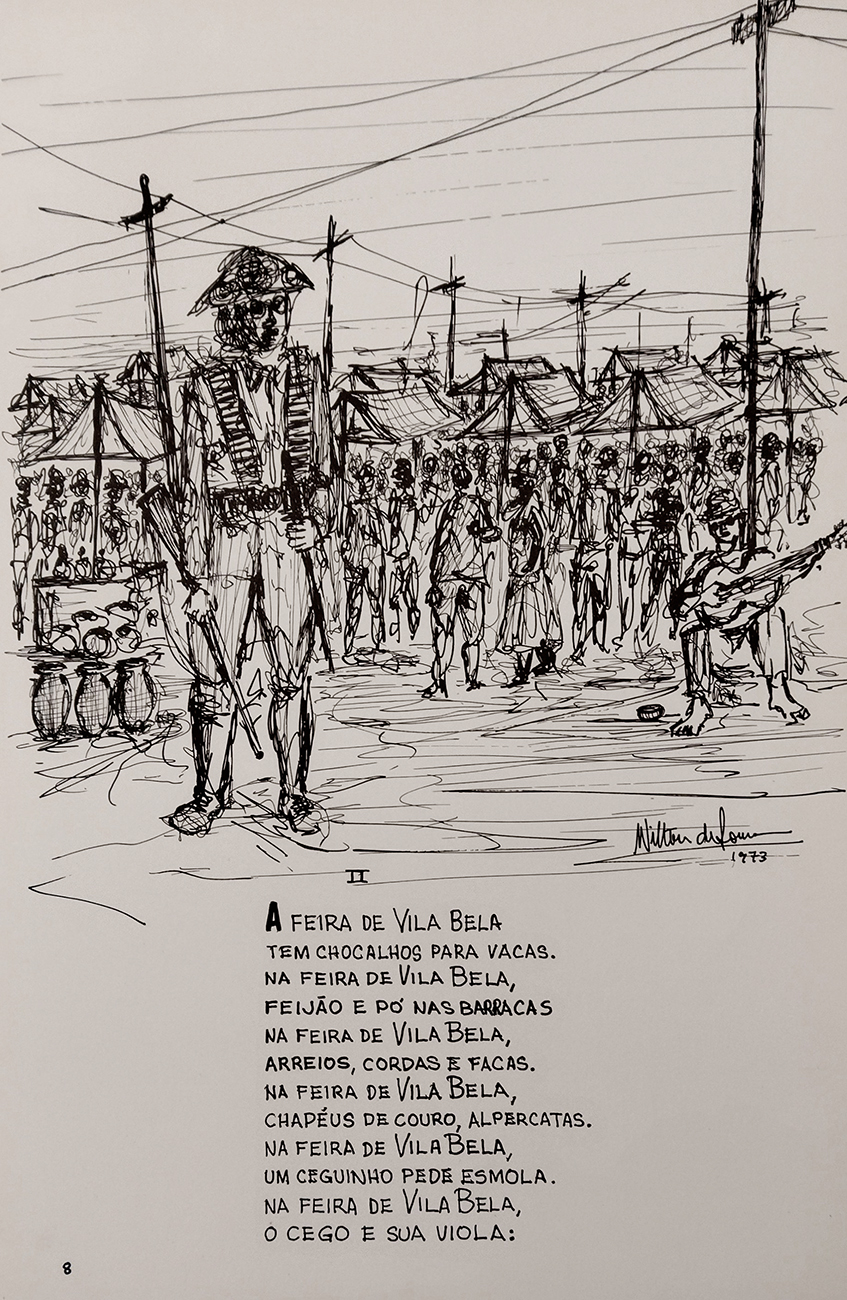 Wilton de Souza
1973
II
A FEIRA DE VILA BELA
TEM CHOCALHOS PARA VACAS.
NA FEIRA DE VILA BELA,
FEIJÃO E PÓ NAS BARRACAS
NA FEIRA DE VILA BELA,
ARREIOS, CORDAS E FACAS.
NA FEIRA DE VILA BELA,
CHAPÉUS DE COURO, ALPERCATAS.
NA FEIRA DE VILA BELA,
UM CEGUINHO PEDE ESMOLA.
NA FEIRA DE VILA BELA,
O CEGO E SUA VIOLA:
8